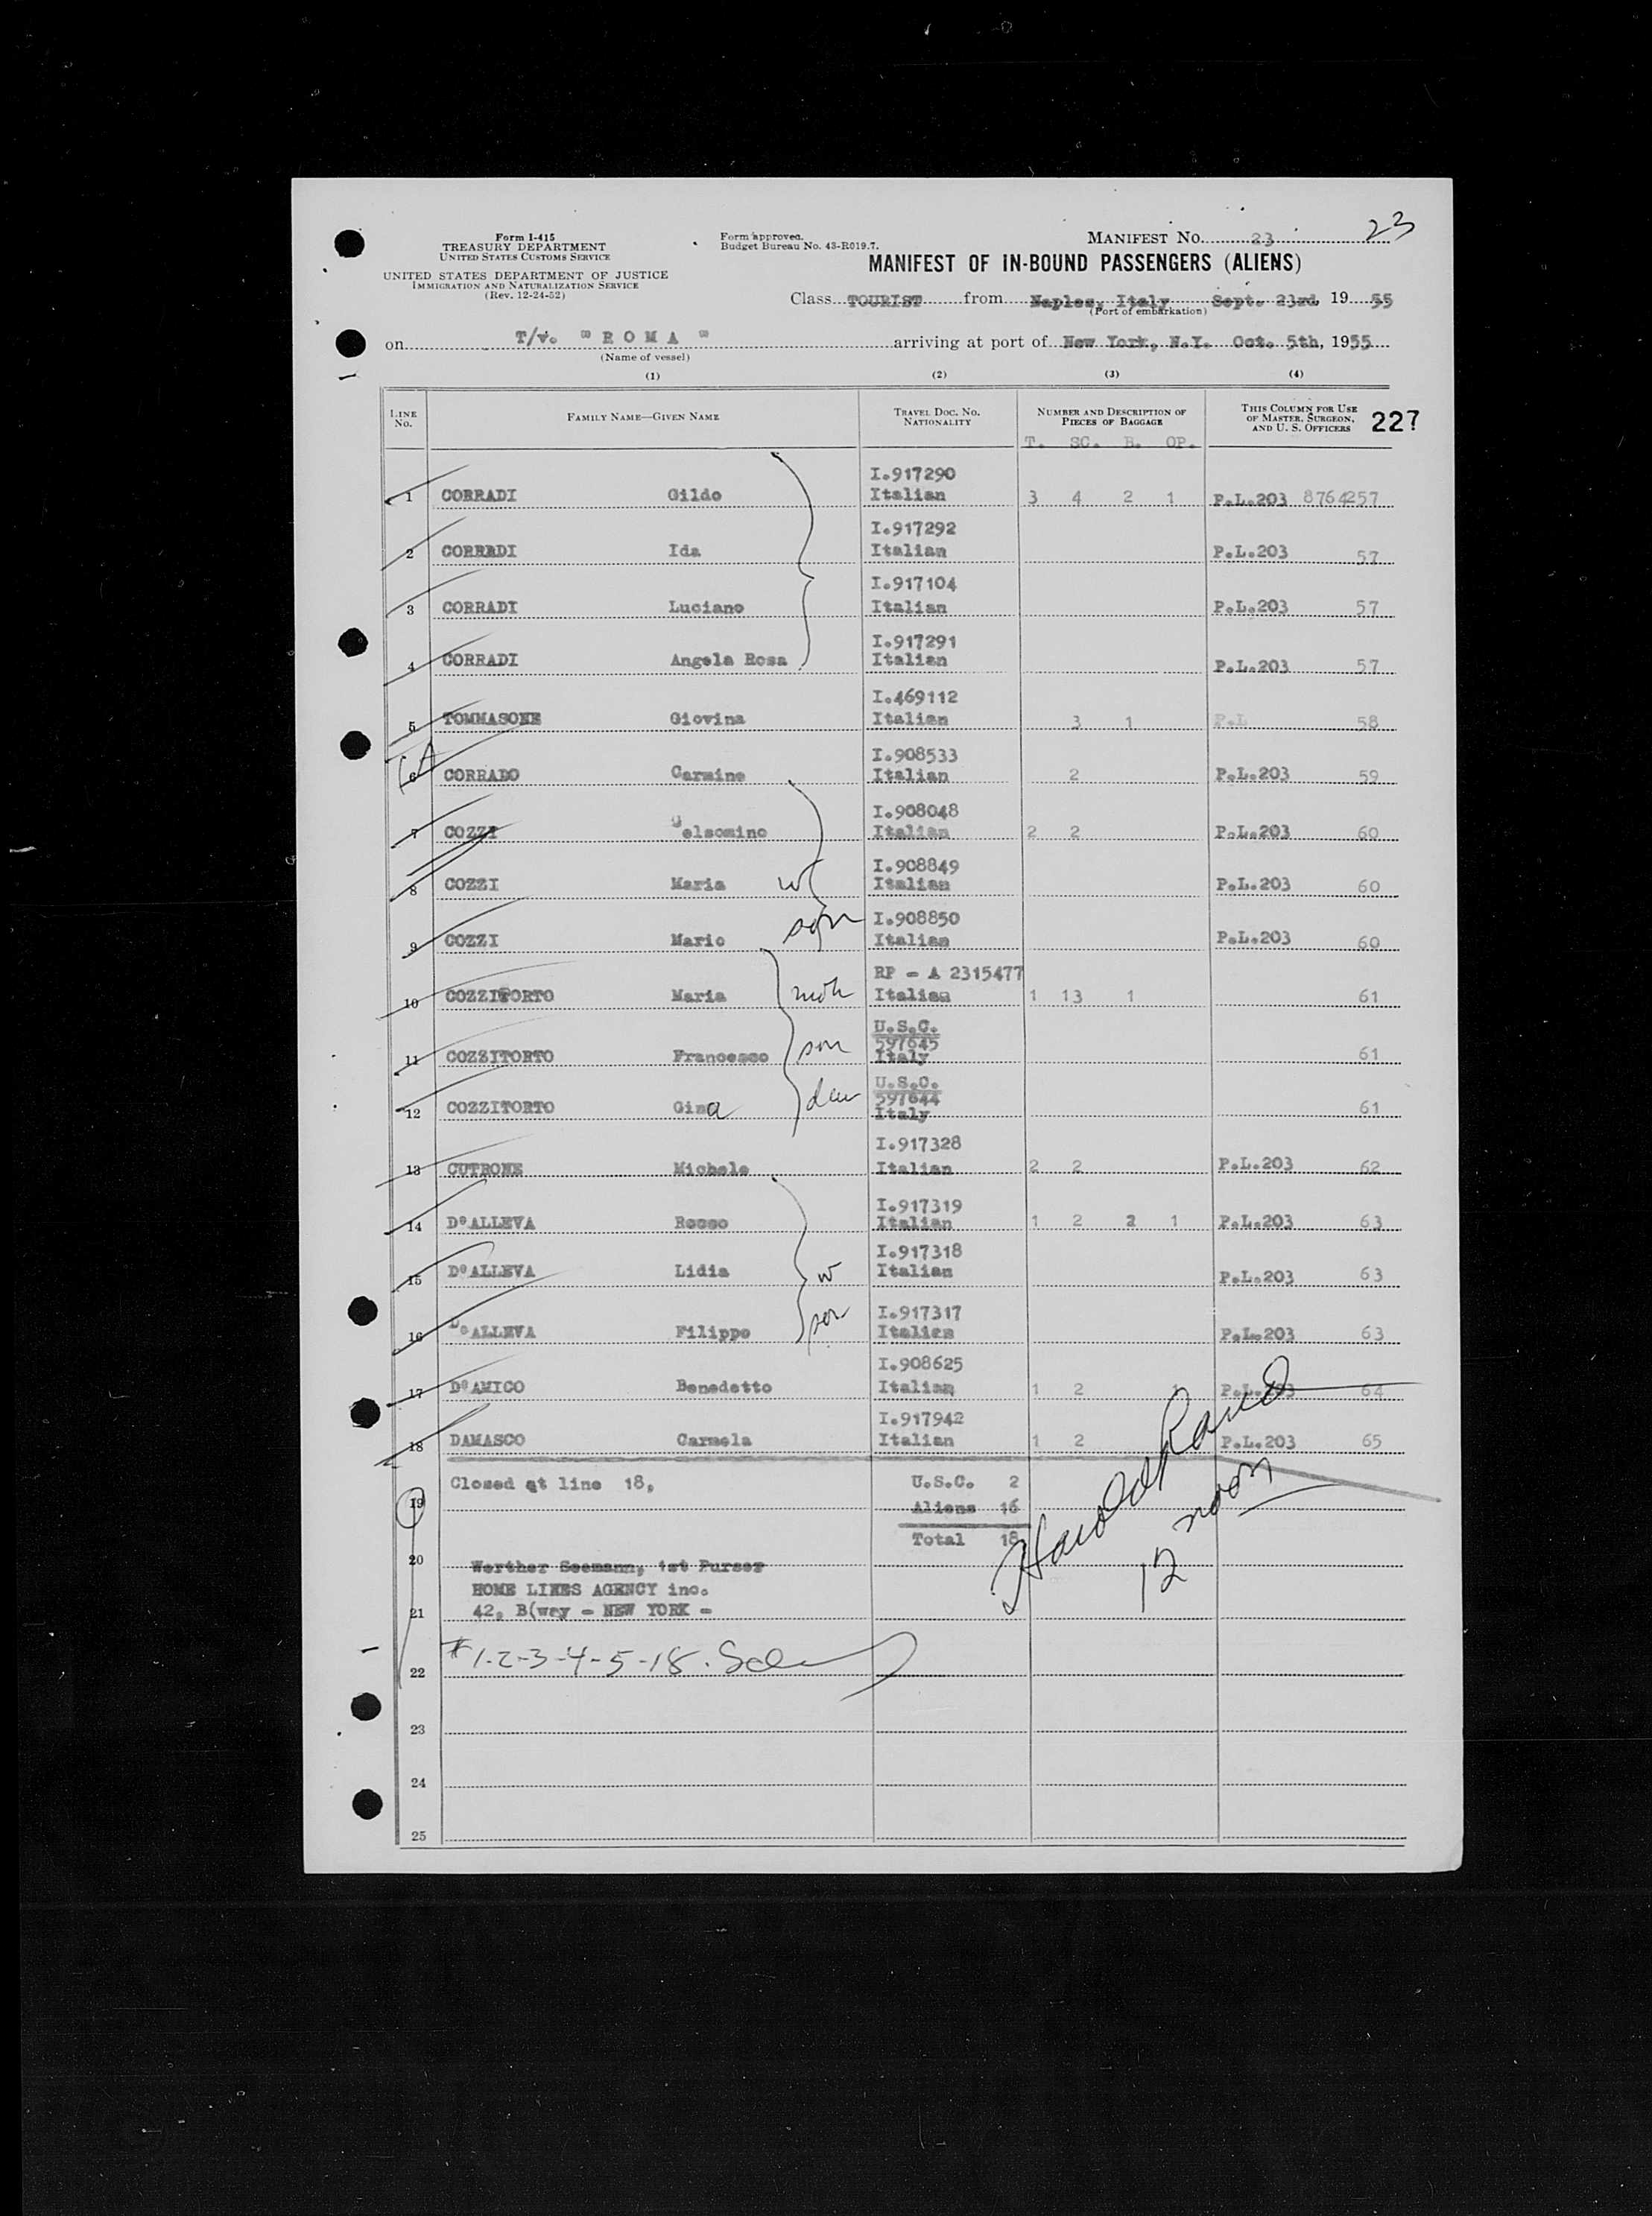 23
Form I-415
TREASURY DEPARTMENT
UNITED STATES CUSTOMS SERVICE
UNITED STATES DEPARTMENT OF JUSTICE
IMMIGRATION AND NATURALIZATION SERVICE
(Rev. 12-24-52)
Form approved.
Budget Bureau No. 43-R019.7.
MANIFEST NO. 23
MANIFEST OF IN-BOUND PASSENGERS (ALIENS)
Class TOURIST from Naples, Italy Sept. 23rd, 1955
(Port of embarkation)
on T/v. "ROMA" arriving at port of New York, N.Y. Oct. 5th, 1955
(Name of vessel)
(1) (2) (3) (4)
LINE NO. FAMILY NAME—GIVEN NAME TRAVEL DOC. NO. NATIONALITY NUMBER AND DESCRIPTION OF PIECES OF BAGGAGE THIS COLUMN FOR USE OF MASTER, SURGEON, AND U. S. OFFICERS 227
T. SC. B. OP.
I.917290
1 CORRADI Gildo Italian 3 4 2 1 P.L.203 8764257
I.917292
2 CORRADI Ida Italian P.L.203 57
I.917104
3 CORRADI Luciano Italian P.L.203 57
I.917291
4 CORRADI Angela Rosa Italian P.L.203 57
I.469112
5 TOMMASONE Giovina Italian 3 1 P.L 58
I.908533
6 CORRADO Carmine Italian 2 P.L.203 59
I.908048
7 COZZI Gelsomino Italian 2 2 P.L.203 60
I.908849
8 COZZI Maria w Italian P.L.203 60
I.908850
9 COZZI Mario son Italian P.L.203 60
RP - A 2315477
10 COZZITORTO Maria moth Italian 1 13 1 61
U.S.C.
597645
11 COZZITORTO Francesco son Italy 61
U.S.C.
597644
12 COZZITORTO Gina dau Italy 61
I.917328
13 CUTRONE Michele Italian 2 2 P.L.203 62
I.917319
14 D'ALLEVA Rocco Italian 1 2 2 1 P.L.203 63
I.917318
15 D'ALLEVA Lidia w Italian P.L.203 63
I.917317
16 D'ALLEVA Filippo son Italian P.L.203 63
I.908625
17 D'AMICO Benedetto Italian 1 2 1 P.L.203 64
I.917942
18 DAMASCO Carmela Italian 1 2 P.L.203 65
Closed at line 18, U.S.C. 2
19 Aliens 16
Total 18
12 noon
20 Werther Seemann, 1st Purser
HOME LINES AGENCY inc.
21 42, B(way - NEW YORK -
22 #1-2-3-4-5-18.
23
24
25